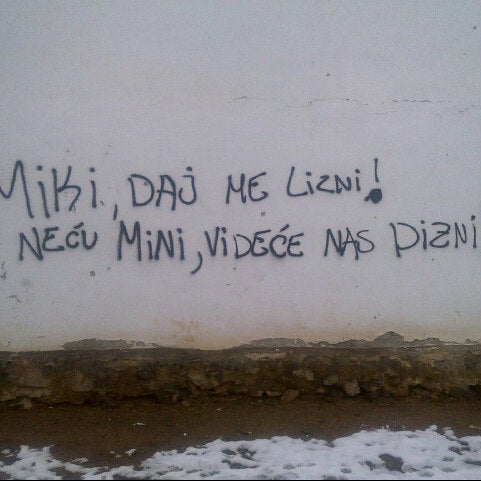 Miki, DAJ ME Lizni!
NEĆU MiNi, ViDEĆE NAS DiZNi